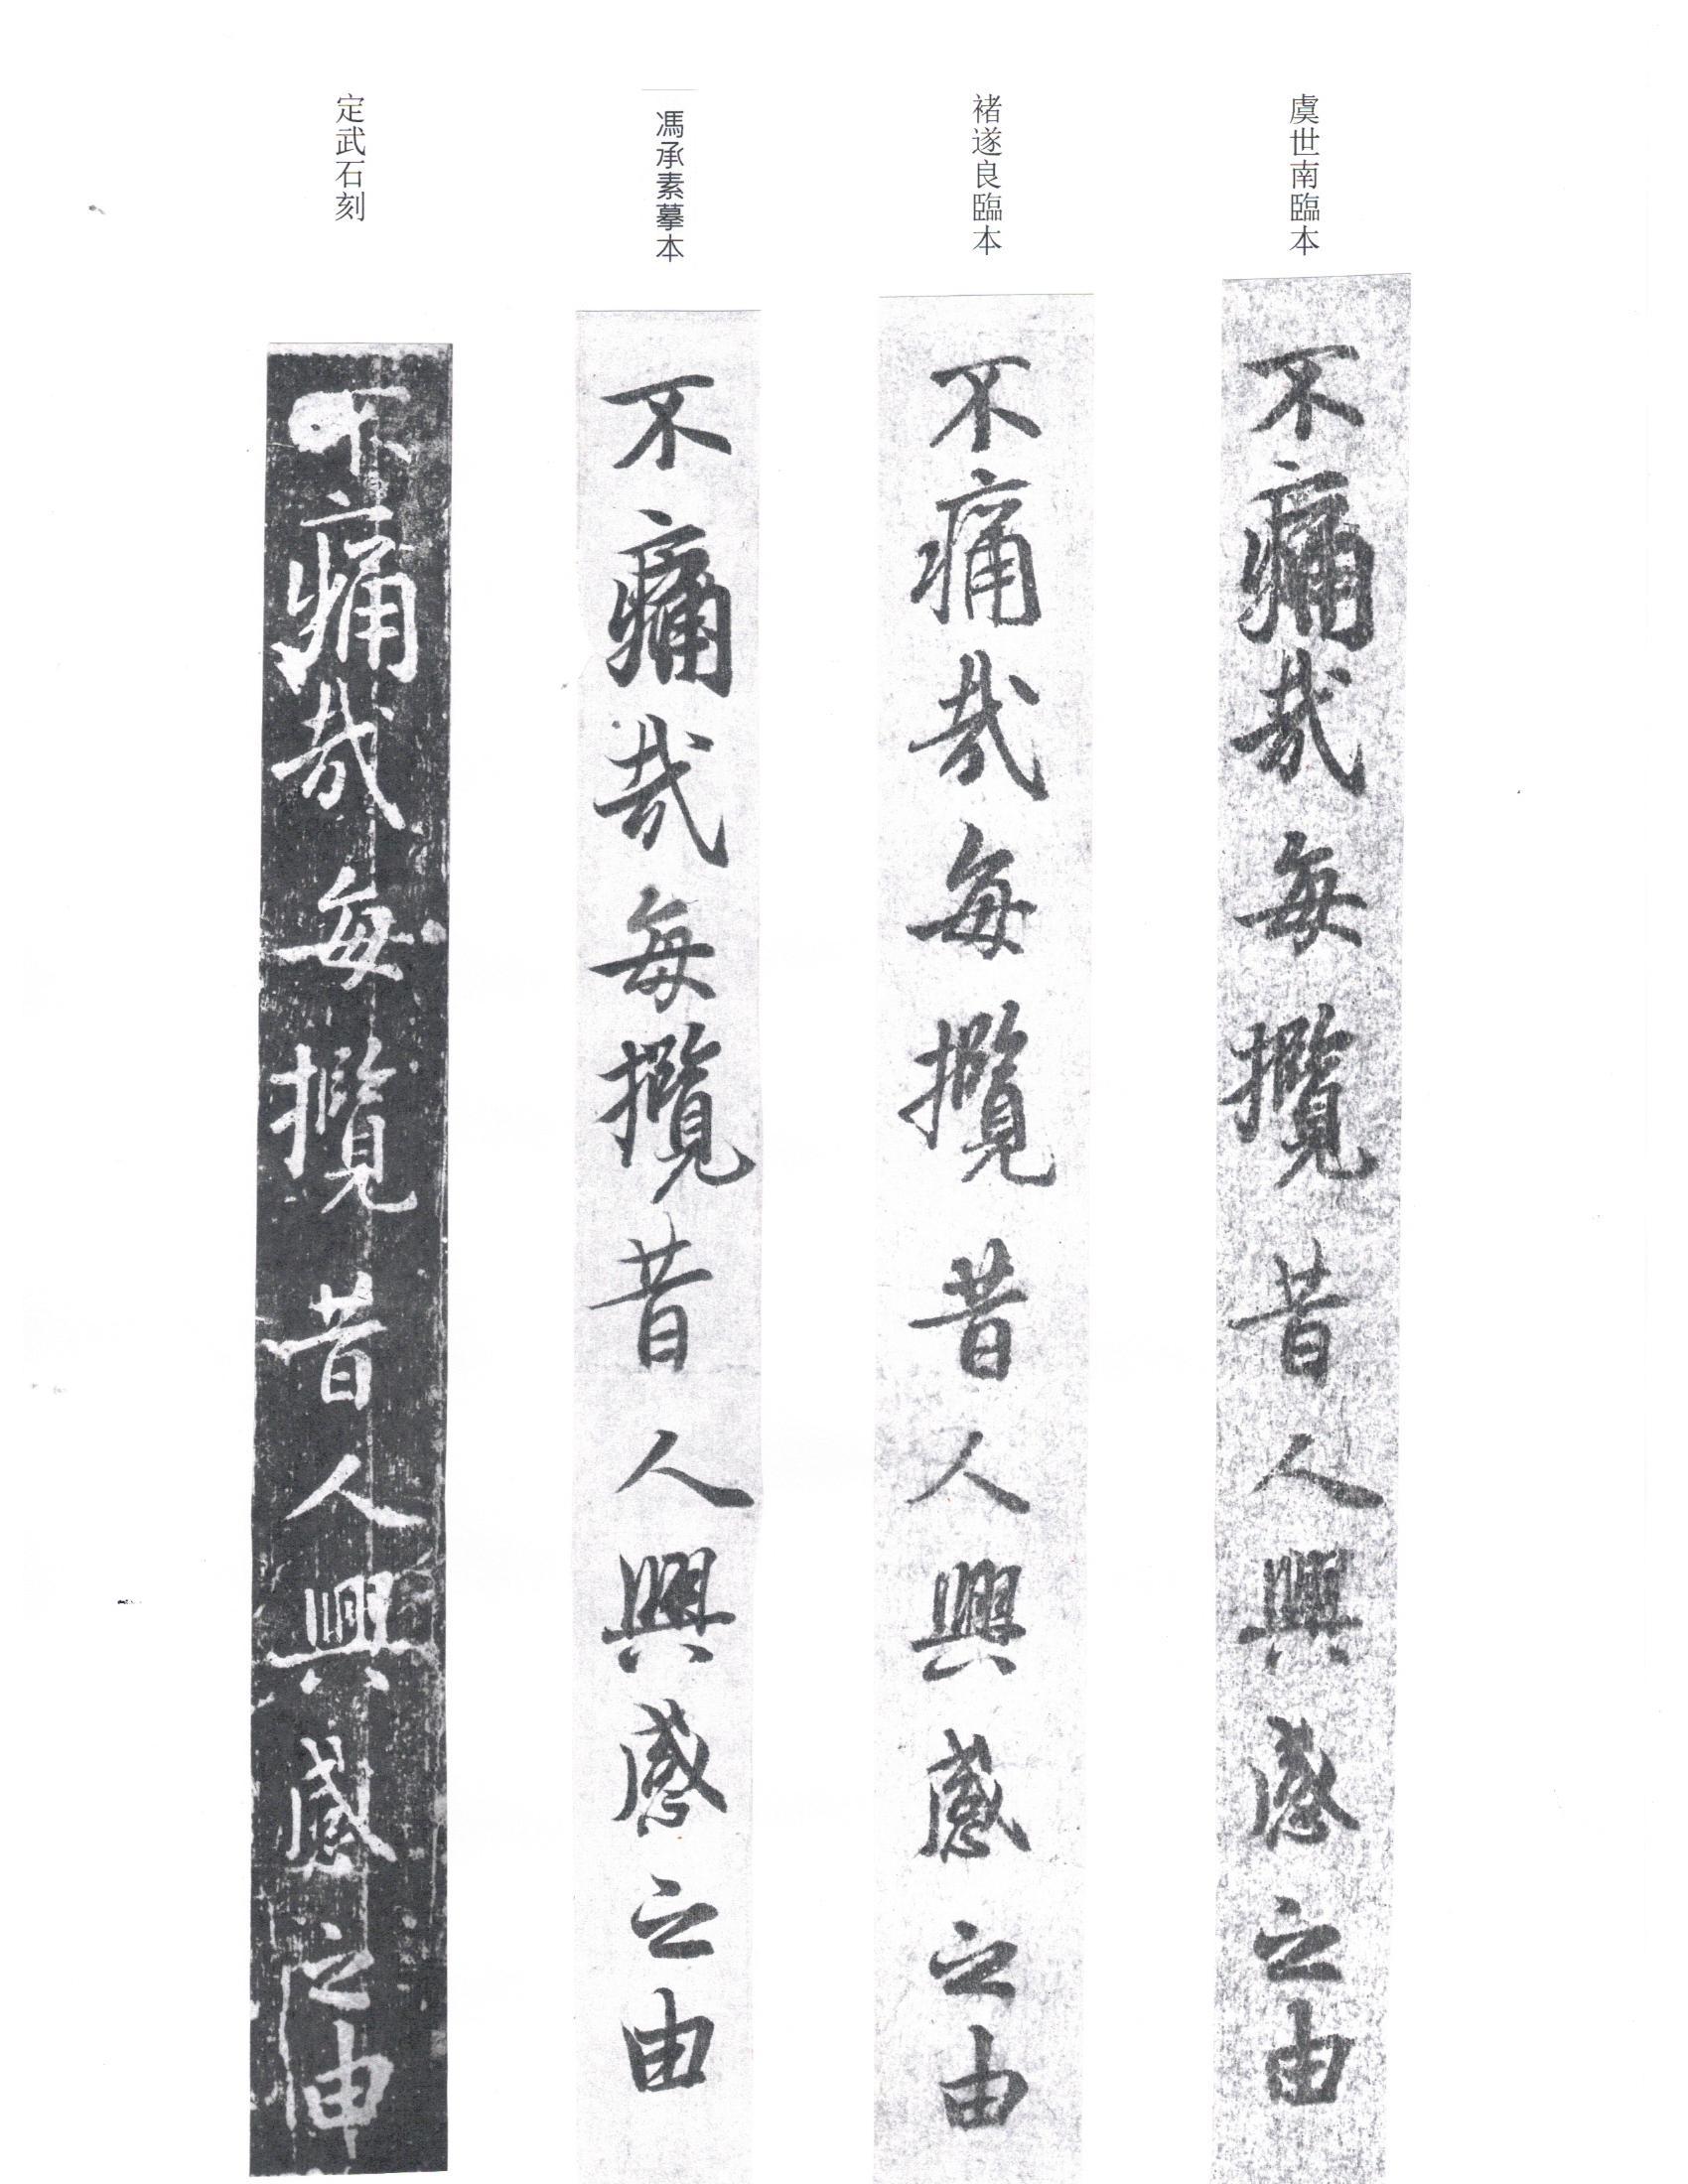 虞世南臨本
不痛哉每攬昔人興感之由
褚遂良臨本
不痛哉每攬昔人興感之由
馮承素摹本
不痛哉每攬昔人興感之由
定武石刻
不痛哉每攬昔人興感之由